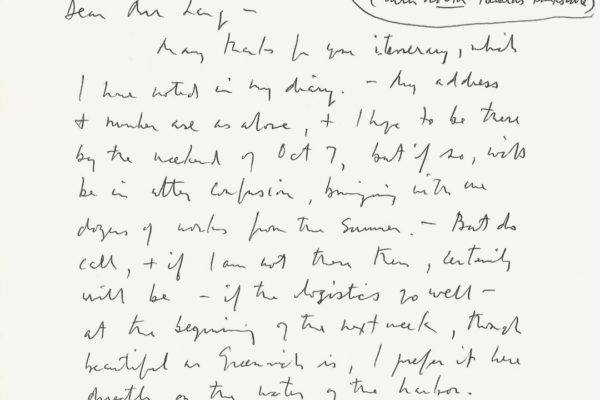 towards
Dear Mr Lang –
Many thanks for your itenerary, which
I have noted in my diary. – My address
+ number are as above, + I hope to be there
by the weekend of Oct 7, but if so, will
be in utter confusion, bringing with me
dozens of works from the summer. – But do
call, + if I am not there then, certainly
will be – if the logistics go well –
at the beginning of the next week, though
beautiful as Greenwich is, I prefer it here
directly on the water of the harbor.